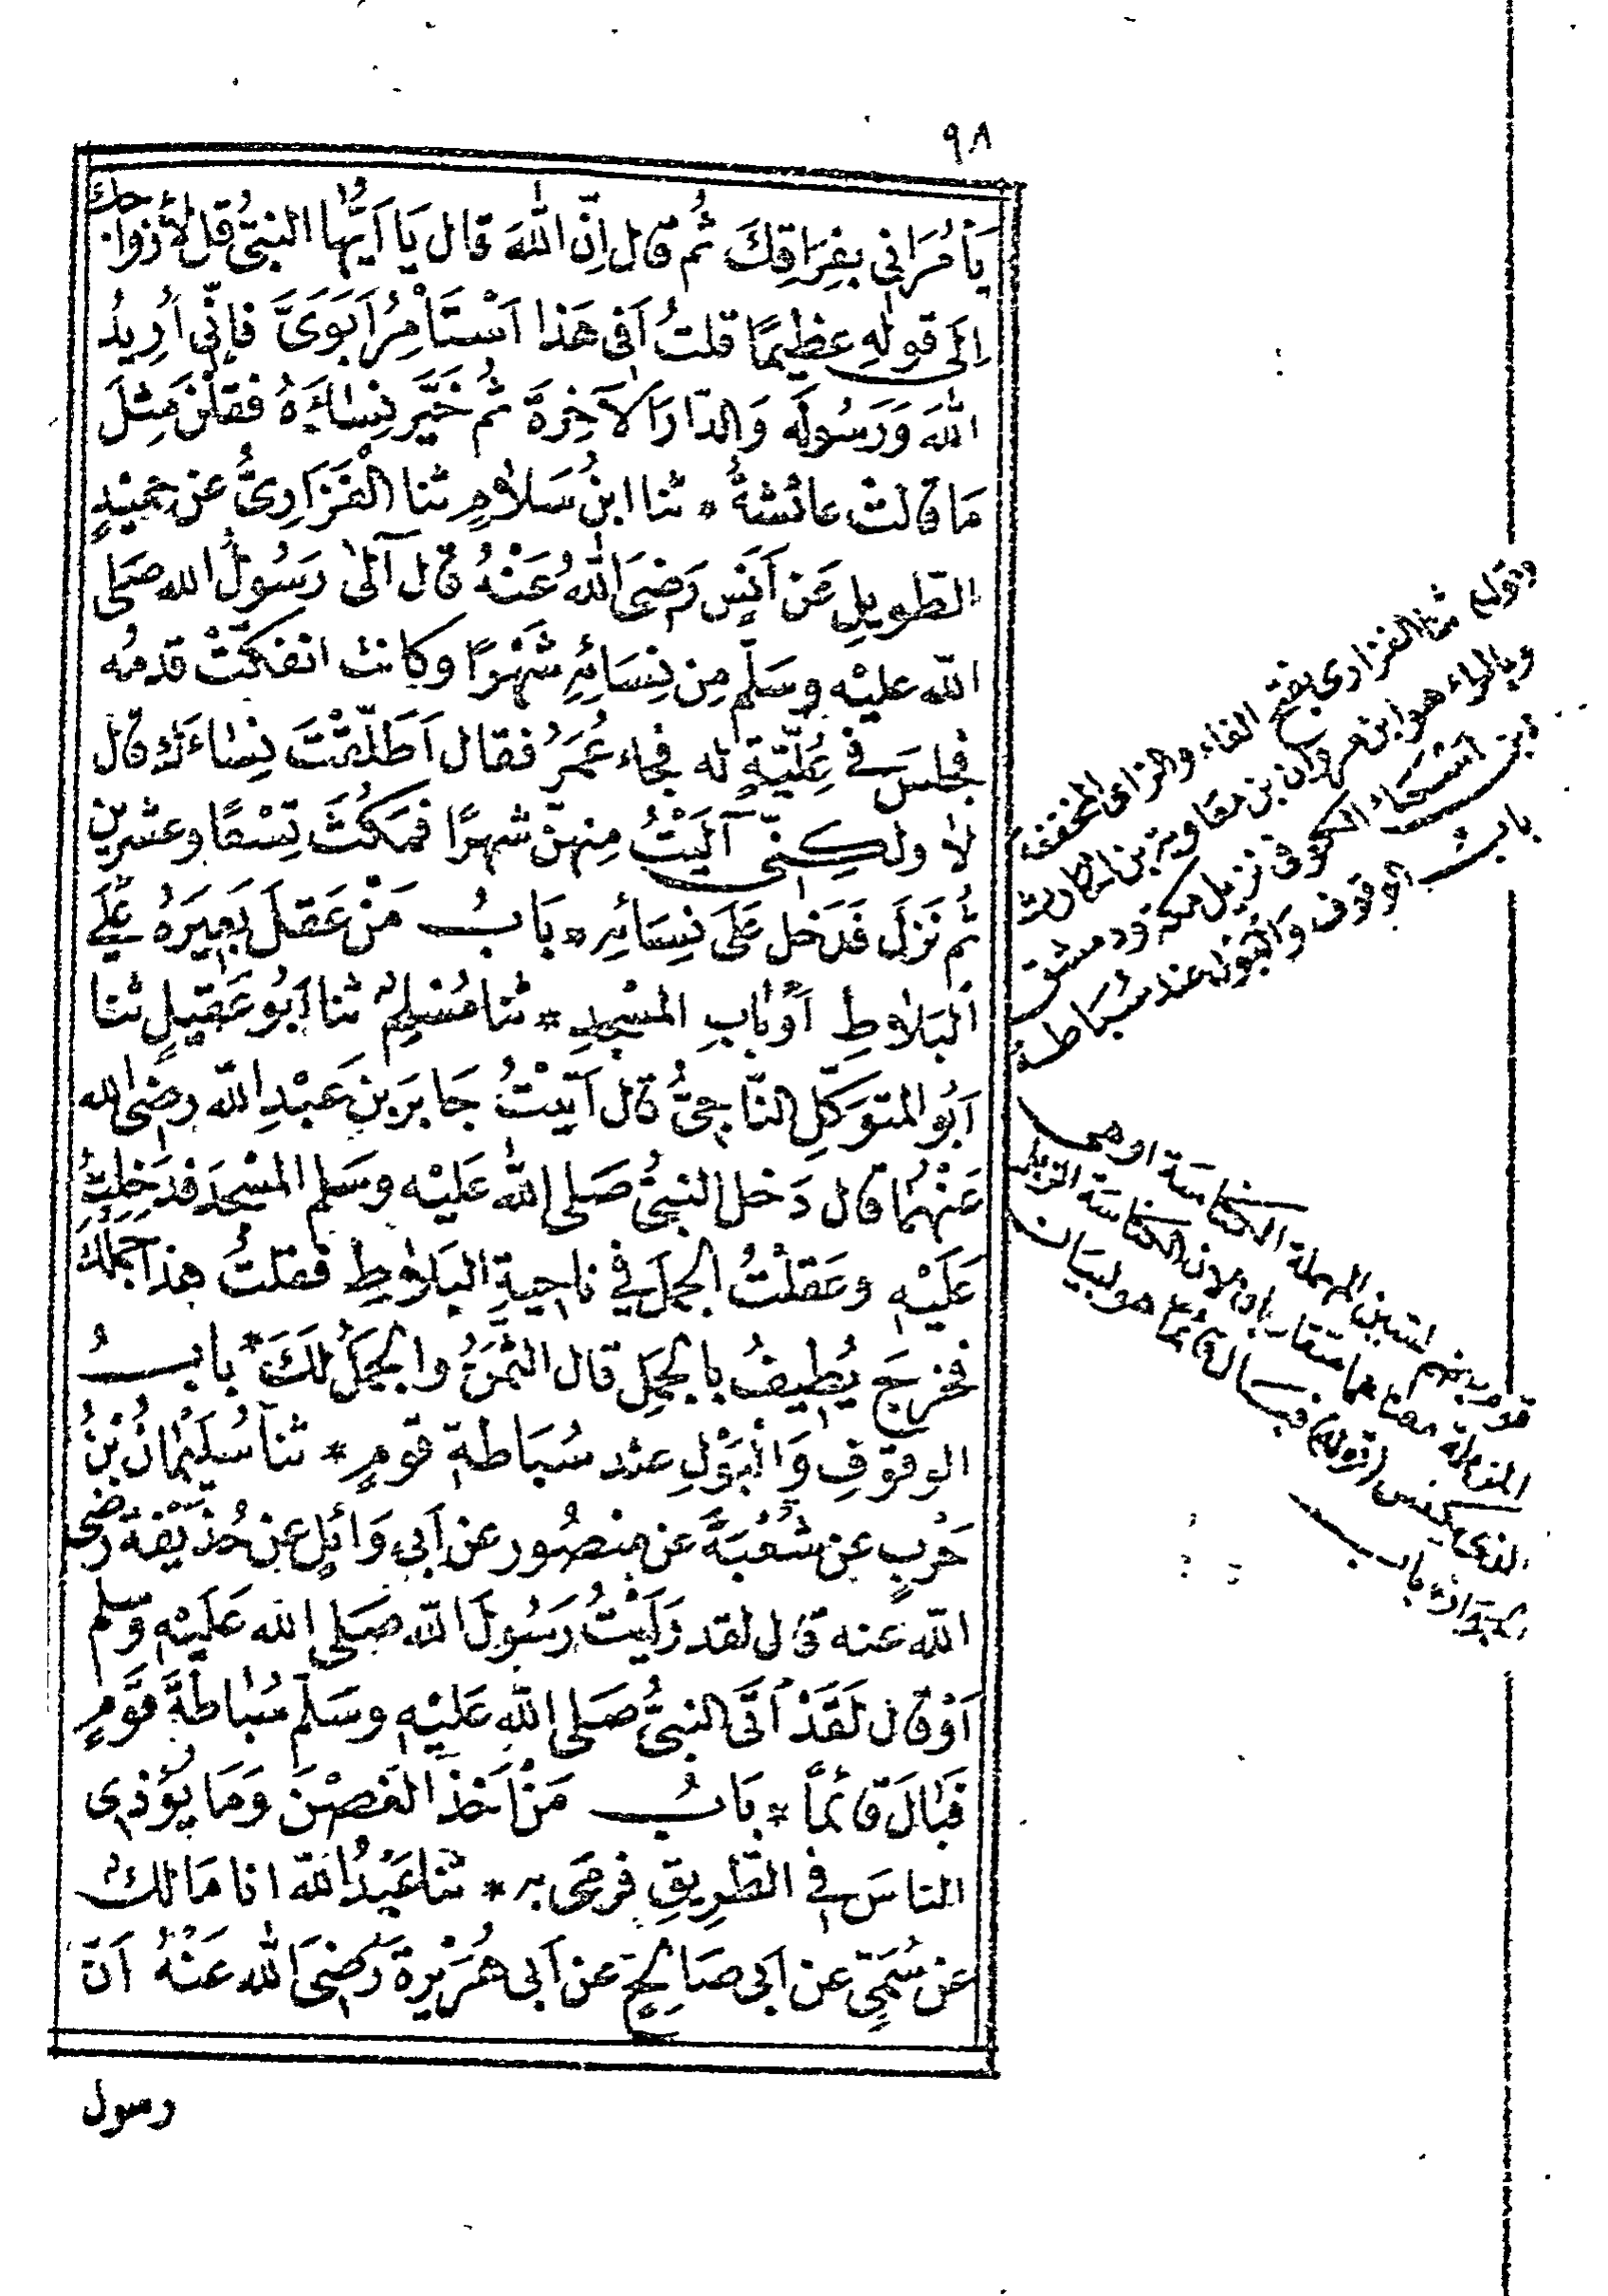 ٩٨
يَأمُرَانِي بِفِرَاقِكَ ثُم قال اِنّ اللّٰهَ قال يَا اَيُّهَا النبيُّ قل لأزواجك
اِلَى قولِهِ عظِيمًا قلتُ اَفى هَذا اَسْتَأمِرُ اَبَوَىَّ فاِنِّى اُرِيدُ
اللّٰهَ وَرَسُولَه وَالدّارَ الآخِرةَ ثم خَيَّرَ نِسَاءَهُ فقلْنَ مِثلَ
مَا قالتْ عائشةُ * ثنا ابنُ سَلامٍ ثنا الفَزَارِىُّ عن حميْدٍ
الطّويلِ عَن اَنَسٍ رَضِىَ اللّٰهُ عَنْهُ قال آلٰى رَسُولُ الله صَلى
اللّه عليْه وسَلّم مِن نِسَائِهِ شَهْرًا وكانت انفكّتْ قدمُه
فجلسَ في عُلِّيَّةٍ له فجاء عُمَرُ فقال اَطَلّقْتَ نِسَاءَكَ قال
لا ولكِنِّى آلَيْتُ مِنهنّ شهرًا فمكُثَ تِسْعًا وعشرين
ثُم نَزَلَ فَدَخل عَلَى نِسَائِه * بَابُ مَنْ عَقلَ بَعِيرَهُ عَلَى
البَلاطِ اَوْبَابِ المسْجِدِ * ثنا مُسْلِمٌ ثنا اَبُو عَقِيلٍ ثنا
اَبُو المتوَكِّلِ النّاجِىُّ قال اَتيْتُ جَابرَ بنَ عَبْدِ اللّه رضِى الله
عَنْهُمَا قال دَخل النبىُّ صَلى اللّٰه عَلَيْه وسَلم المسْجدَ فدَخلتُ
عَلَيْهِ وعَقلْتُ الجملَ فِي ناحِيةِ البَلاطِ فقلتُ هذا جَمَلُكَ
فخرجَ يُطِيفُ بالجمَلِ قال الثمَنُ والجمَلُ لَكَ * بابُ
الوقوفِ وَالْبَوْلِ عند سُبَاطةِ قومٍ * ثنا سُلَيْمَانُ بنُ
حَرْبٍ عن شُعْبَةَ عَن منصُور عن اَبى وَائِلٍ عن حُذيْفةَ رضى
اللّه عنه قال لقد رَاَيْتُ رَسُولَ اللّه صَلى الله عَلَيْهِ وسلم
اَوْ قال لَقَدْ اَتَى النبىُّ صَلى اللّٰه عَليْهِ وسَلم سُبَاطةَ قَوْمٍ
فَبَالَ قائماً * بَابُ مَنْ اَخذَ الغصْنَ وَمَا يُؤْذِى
الناسَ فِى الطّرِيقِ فرمَى بِه * ثنا عَبْدُ اللّٰه انا مَالكٌ
عن سُمَىٍّ عن اَبى صَالِحٍ عن اَبى هُرَيْرةَ رَضِىَ الله عَنْهُ اَنّ
رسول
وقوله ثنا الفزارى بفتح الفاء والزاى المخففة
وبالراء هو ابن مروان بن معاوية بن الحارث
ابن اسماء الكوفى نزيل مكة ودمشق
باب الوقوف والبول عند سباطة
قوم بضم السين المهملة الكناسة او هى
المزبلة معناهما متقاربان لان الكناسة الزبل
الذى يكنس (قوله) فبال قائما هو لبيان
باب